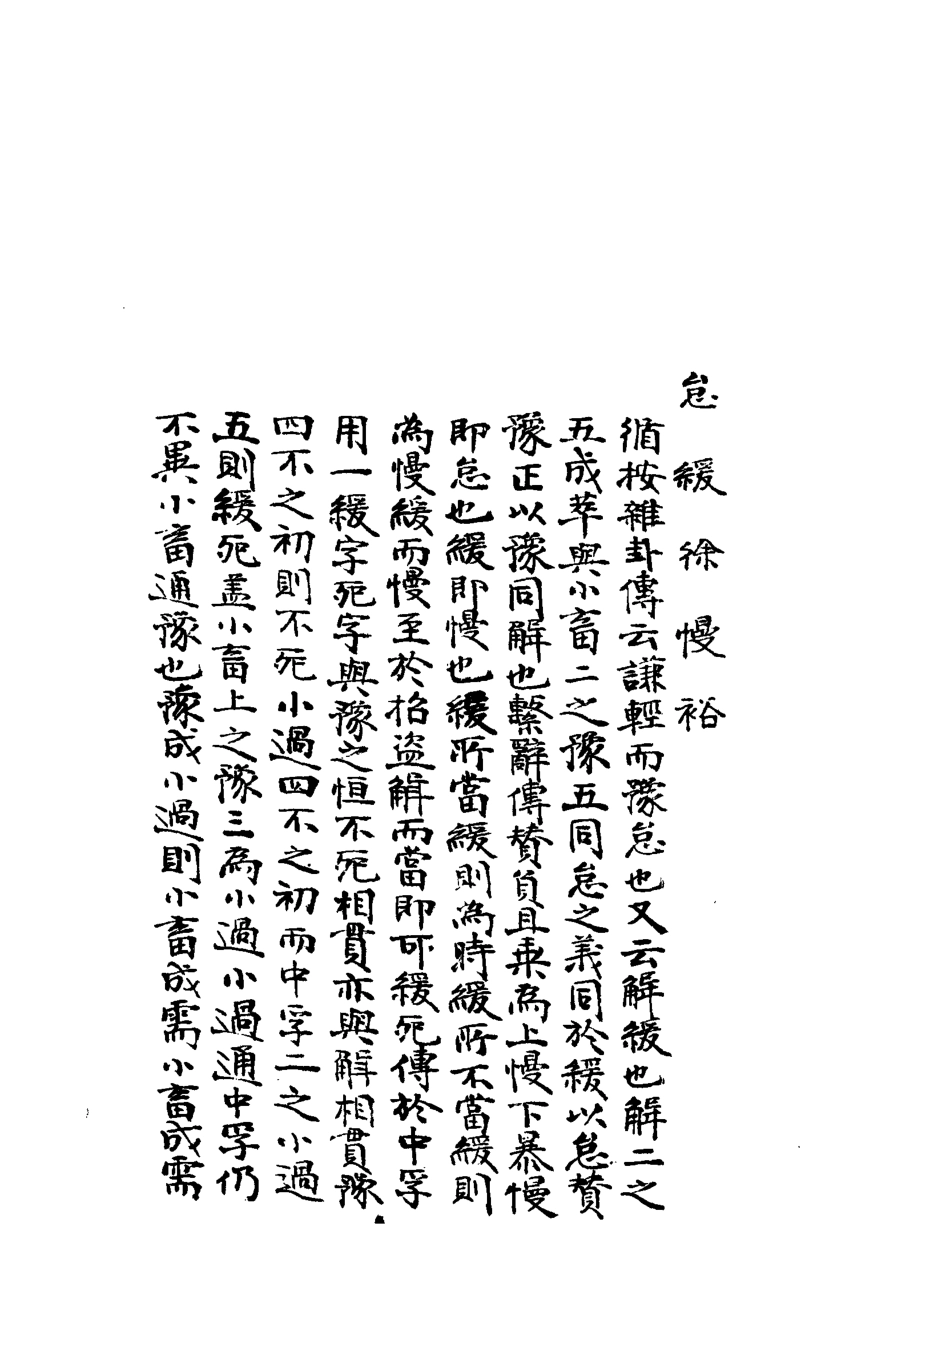 怠 緩 徐 慢 裕
循按雜卦傳云謙輕而豫怠也又云解緩也解二之
五成萃與小畜二之豫五同怠之義同於緩以怠贊
豫正以豫同解也繫辭傳贊負且乘為上慢下暴慢
即怠也緩即慢也緩所當緩則為時緩所不當緩則
為慢緩而慢至於招盜解而當即可緩死傳於中孚
用一緩字死字與豫之恒不死相貫亦與解相貫豫
四不之初則不死小過四不之初而中孚二之小過
五則緩死盖小畜上之豫三為小過小過通中孚仍
不異小畜通豫也豫成小過則小畜成需小畜成需